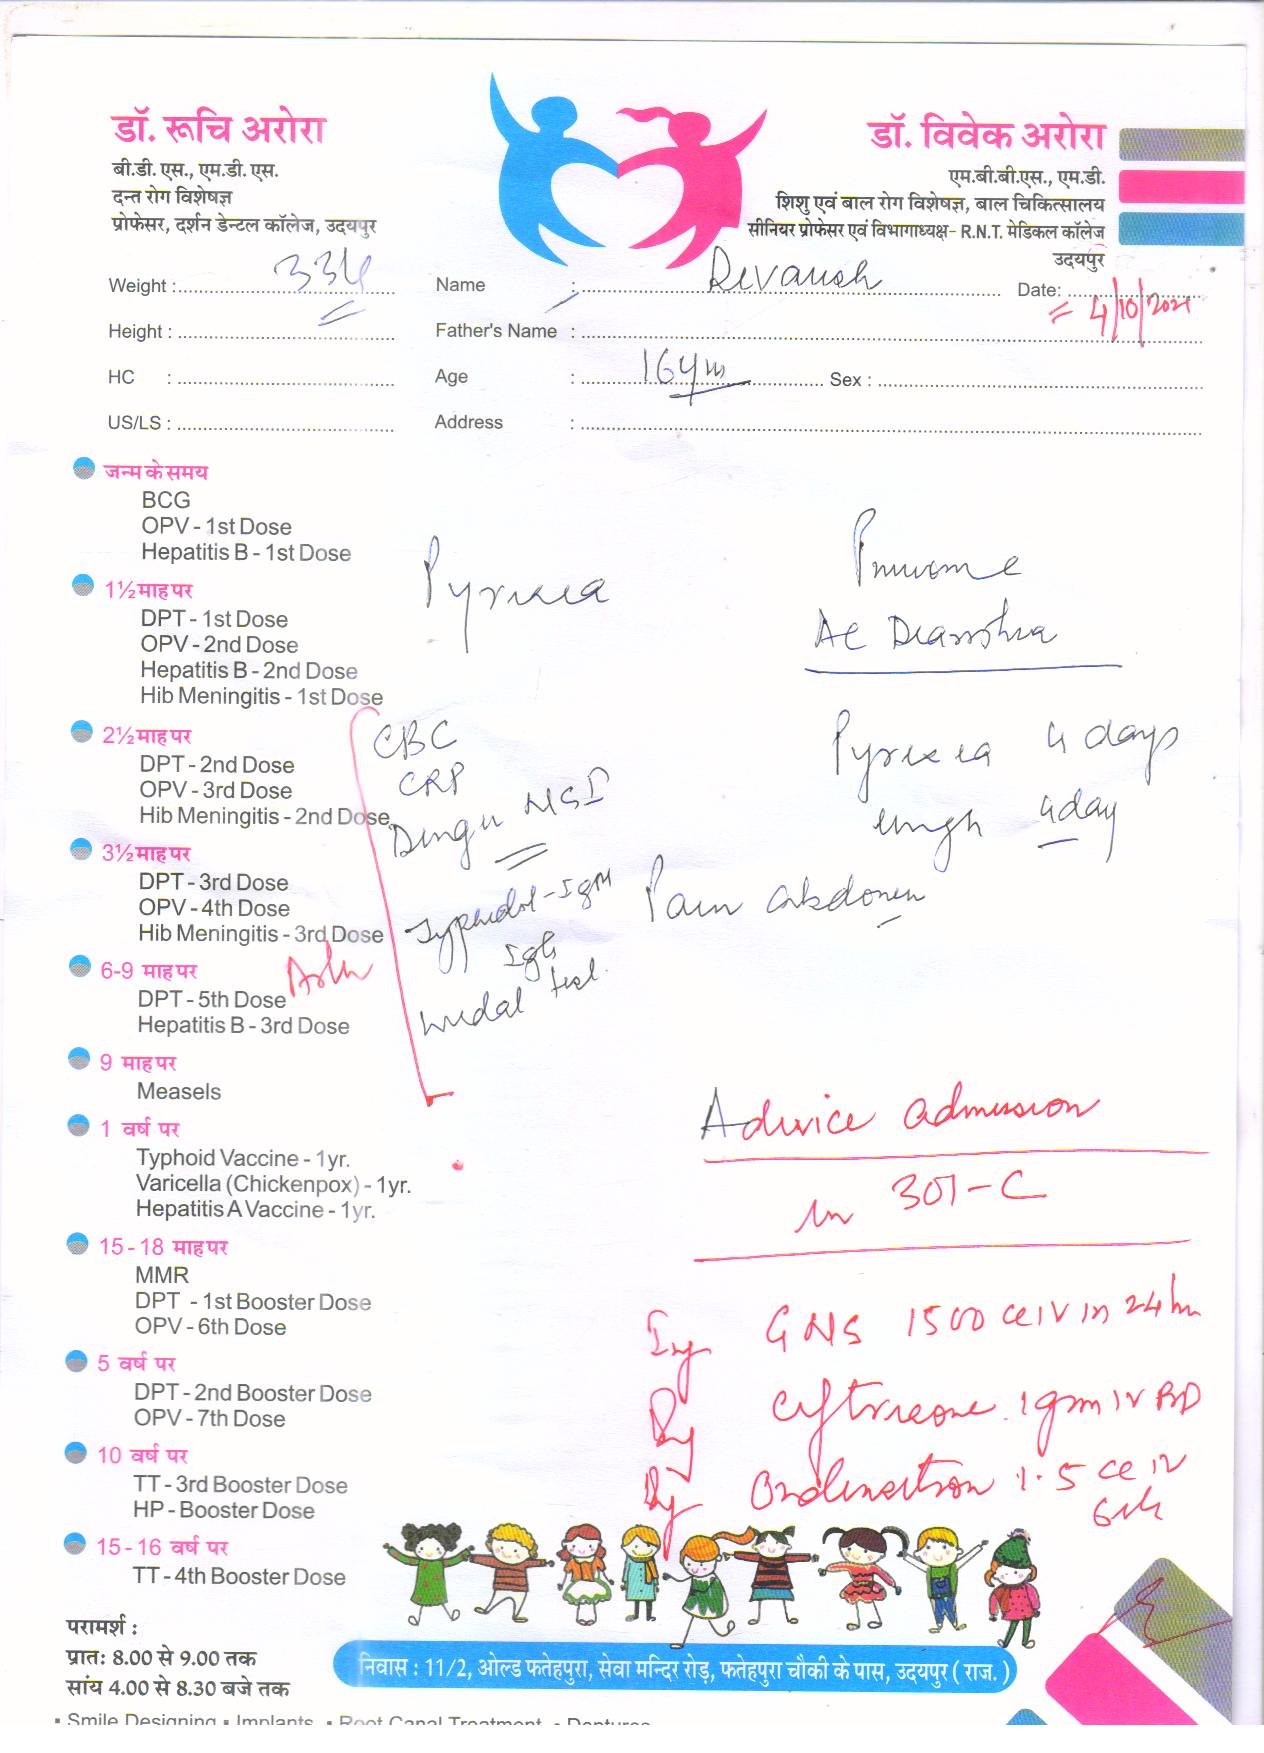 डॉ. रूचि अरोरा
बी.डी. एस., एम.डी. एस.
दन्त रोग विशेषज्ञ
प्रोफेसर, दर्शन डेन्टल कॉलेज, उदयपुर
डॉ. विवेक अरोरा
एम.बी.बी.एस., एम.डी.
शिशु एवं बाल रोग विशेषज्ञ, बाल चिकित्सालय
सीनियर प्रोफेसर एवं विभागाध्यक्ष- R.N.T. मेडिकल कॉलेज
उदयपुर
Weight : Name : Devansh Date: 4/10/2021
Height : Father's Name :
HC : Age : 16 yrs Sex :
US/LS : Address :
जन्म के समय
BCG
OPV - 1st Dose
Hepatitis B - 1st Dose
1½ माह पर
DPT - 1st Dose
OPV - 2nd Dose
Hepatitis B - 2nd Dose
Hib Meningitis - 1st Dose
2½ माह पर
DPT - 2nd Dose
OPV - 3rd Dose
Hib Meningitis - 2nd Dose
3½ माह पर
DPT - 3rd Dose
OPV - 4th Dose
Hib Meningitis - 3rd Dose
6-9 माह पर
DPT - 5th Dose
Hepatitis B - 3rd Dose
9 माह पर
Measels
1 वर्ष पर
Typhoid Vaccine - 1yr.
Varicella (Chickenpox) - 1yr.
Hepatitis A Vaccine - 1yr.
15-18 माह पर
MMR
DPT - 1st Booster Dose
OPV - 6th Dose
5 वर्ष पर
DPT - 2nd Booster Dose
OPV - 7th Dose
10 वर्ष पर
TT - 3rd Booster Dose
HP - Booster Dose
15-16 वर्ष पर
TT - 4th Booster Dose
Pyrexia
CBC
CRP
Dengu NSI
Typhidot-IgM
IgG
widal test
Ac Diarrhea
Pyrexia 4 days
4day
Pain abdomen
Advice admission
in 301-C
Inj GNS 1500 cc IV in 24 hr
Inj ceftrixone 1gm IV BD
Inj Ondensetron 1.5 cc IV
परामर्श :
प्रातः 8.00 से 9.00 तक
सांय 4.00 से 8.30 बजे तक
निवास : 11/2, ओल्ड फतेहपुरा, सेवा मन्दिर रोड़, फतेहपुरा चौकी के पास, उदयपुर ( राज. )
▪ Smile Designing ▪ Implants ▪ Root Canal Treatment ▪ Dentures